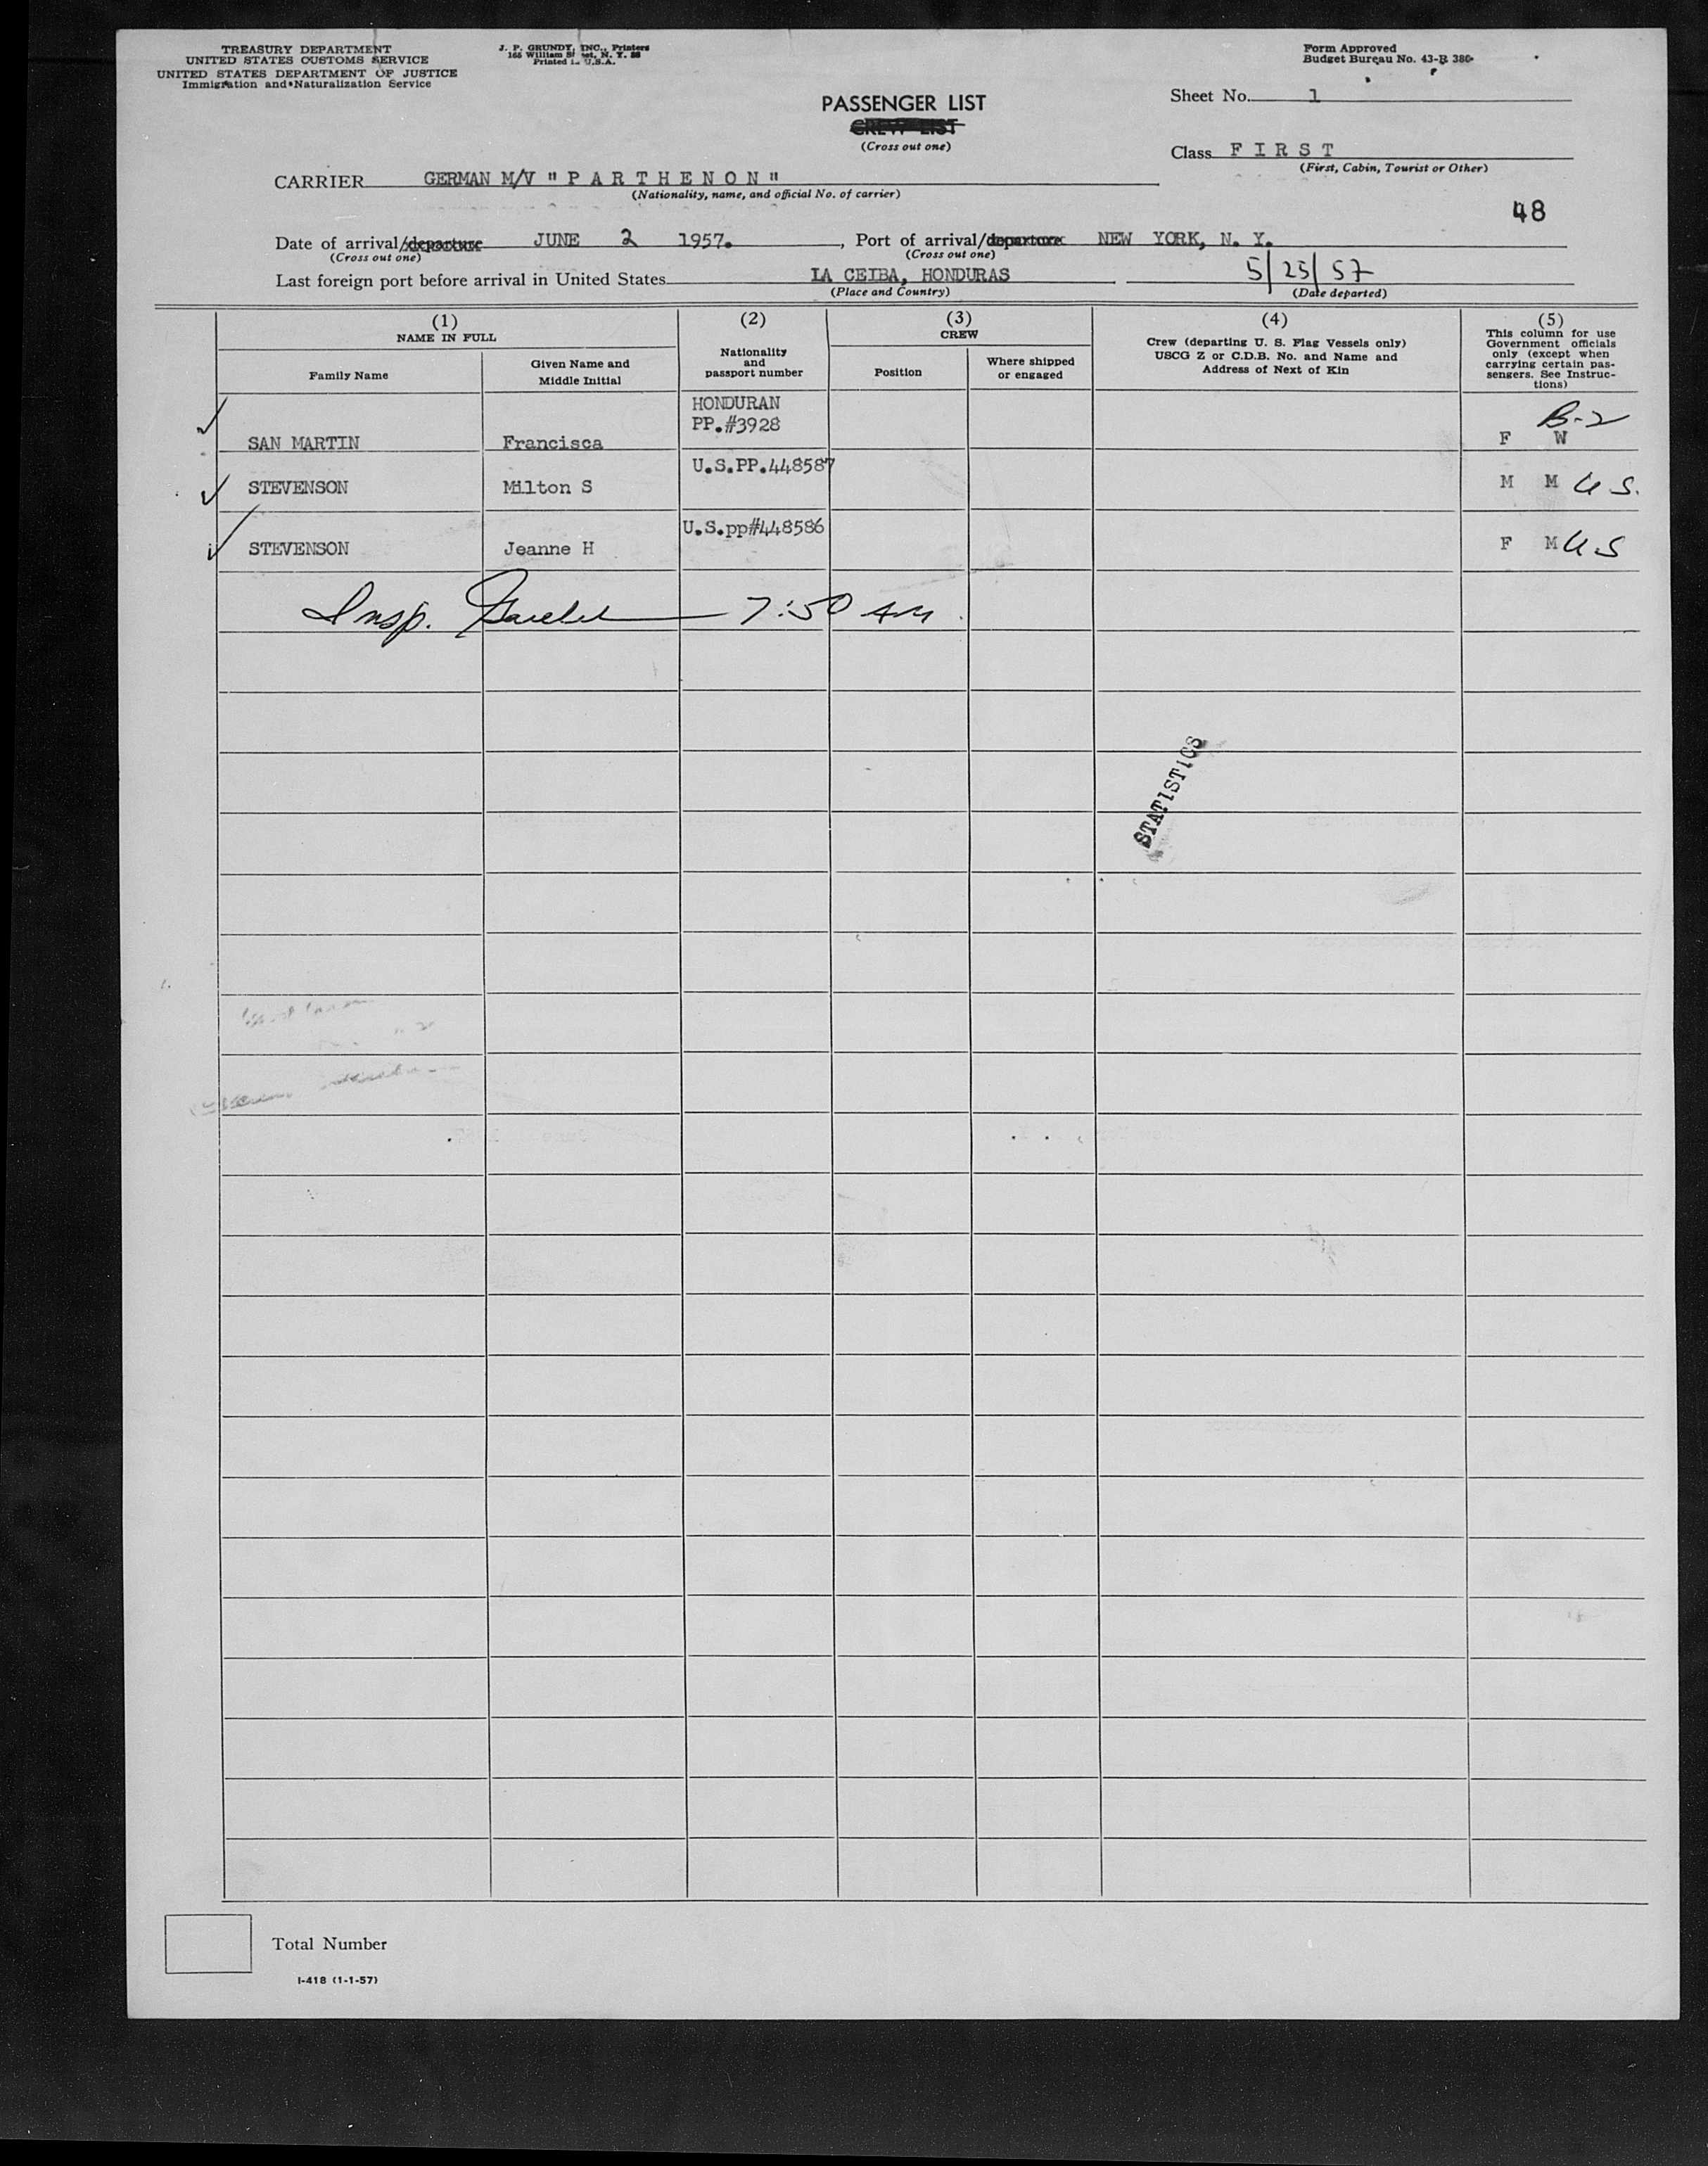 TREASURY DEPARTMENT
UNITED STATES CUSTOMS SERVICE
UNITED STATES DEPARTMENT OF JUSTICE
Immigration and Naturalization Service
J. P. GRUNDY, INC., Printers
165 William St eet, N. Y. 38
Printed i. U.S.A.
Form Approved
Budget Bureau No. 43-R 380
Sheet No. 1
PASSENGER LIST
CREW LIST
(Cross out one)
Class F I R S T
(First, Cabin, Tourist or Other)
CARRIER GERMAN M/V " P A R T H E N O N "
(Nationality, name, and official No. of carrier)
48
Date of arrival/departure JUNE 2 1957. , Port of arrival/departure NEW YORK, N. Y.
(Cross out one) (Cross out one)
Last foreign port before arrival in United States LA CEIBA, HONDURAS 5/25/57
(Place and Country) (Date departed)
(1) (2) (3) (4) (5)
NAME IN FULL
Family Name
Given Name and
Middle Initial
Nationality
and
passport number
CREW
Position
Where shipped
or engaged
Crew (departing U. S. Flag Vessels only)
USCG Z or C.D.B. No. and Name and
Address of Next of Kin
This column for use
Government officials
only (except when
carrying certain pas-
sengers. See Instruc-
tions)
HONDURAN
PP.#3928 B-2
SAN MARTIN Francisca F W
U.S.PP.448587
STEVENSON Milton S M M U S.
U.S.pp#448586
STEVENSON Jeanne H F M U S
Insp. 7:50 AM
STATISTICS
Total Number
I-418 (1-1-57)